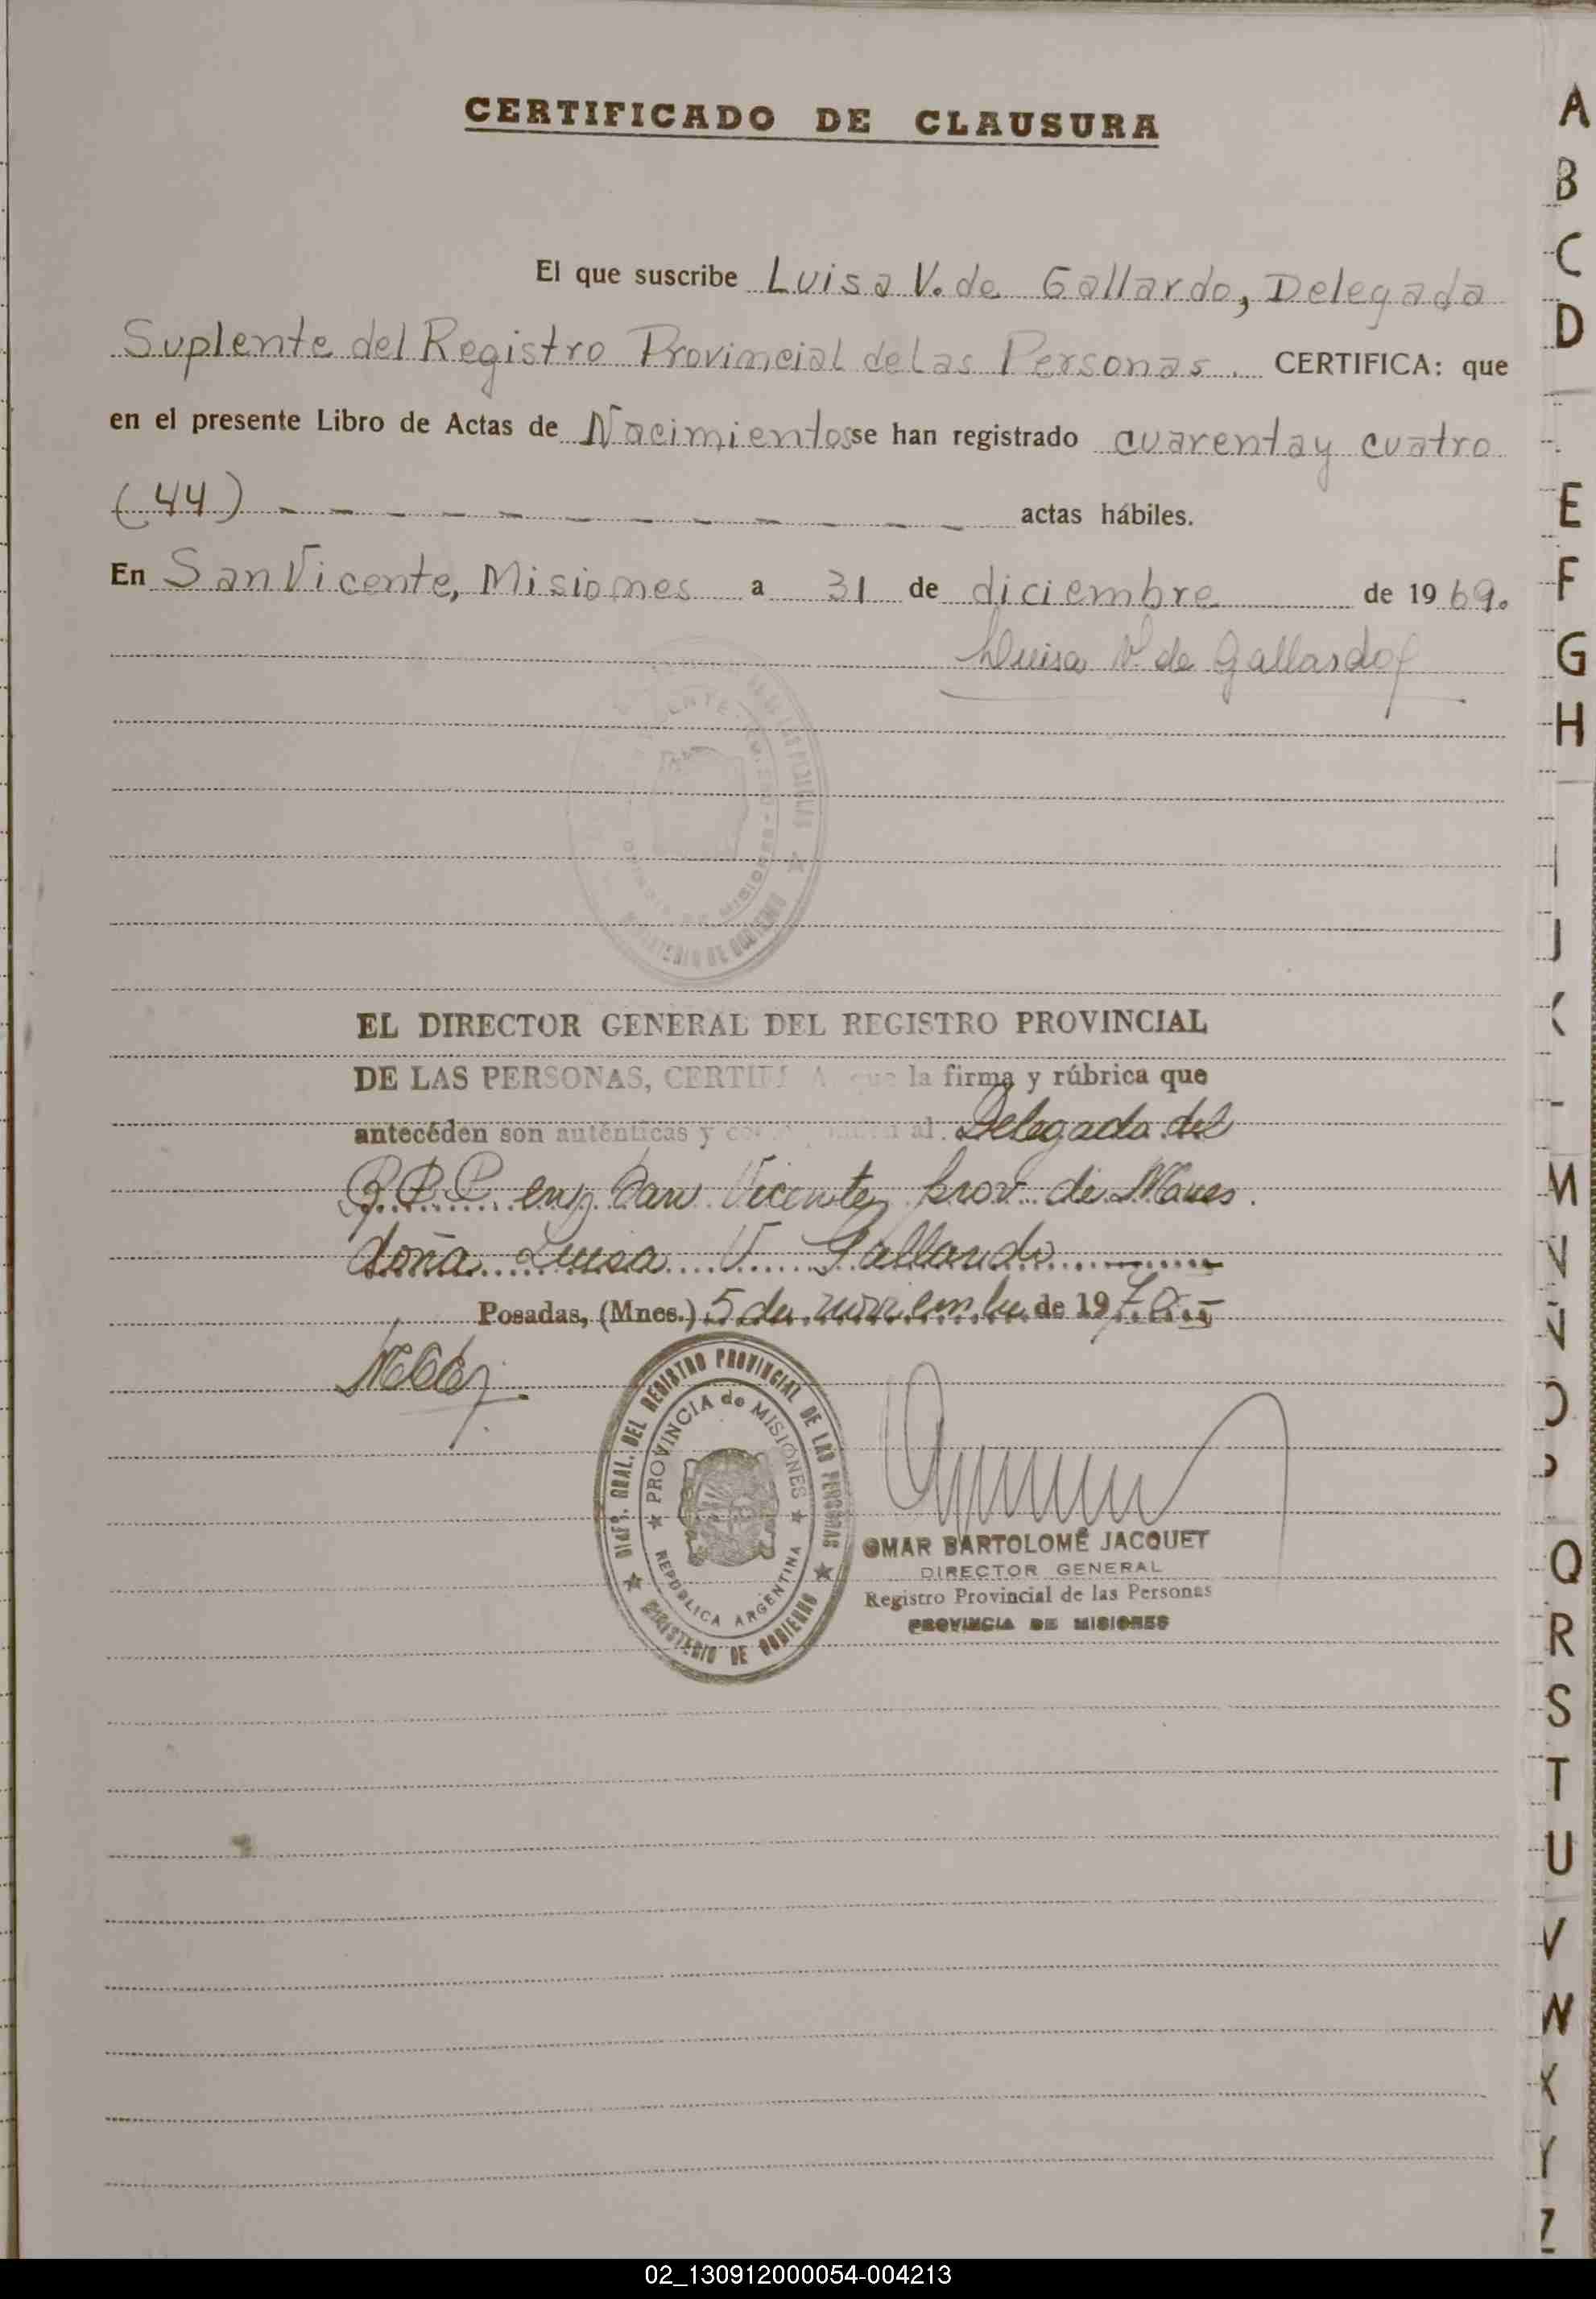 CERTIFICADO DE CLAUSURA
El que suscribe Luisa V. de Gallardo, Delegada
Suplente del Registro Provincial de las Personas. CERTIFICA: que
en el presente Libro de Actas de Nacimientos se han registrado cuarenta y cuatro
(44) - - - - - - - - - - - - actas hábiles.
En San Vicente, Misiones a 31 de diciembre de 1969.
Luisa V. de Gallardo
EL DIRECTOR GENERAL DEL REGISTRO PROVINCIAL
DE LAS PERSONAS, CERTIFICA que la firma y rúbrica que
antecéden son auténticas y al Delegado del
R.P.P. en San Vicente, prov. de Mnes.
doña Luisa V. Gallardo
Posadas, (Mnes.) 5 de noviembre de 1970
DIREC. GRAL. DEL REGISTRO PROVINCIAL DE LAS PERSONAS
PROVINCIA de MISIONES
REPÚBLICA ARGENTINA
MINISTERIO DE GOBIERNO
OMAR BARTOLOMÉ JACQUET
DIRECTOR GENERAL
Registro Provincial de las Personas
PROVINCIA DE MISIONES
A
B
C
D
E
F
G
H
I
J
K
M
N
Ñ
O
P
Q
R
S
T
U
V
W
X
Y
Z
02_130912000054-004213